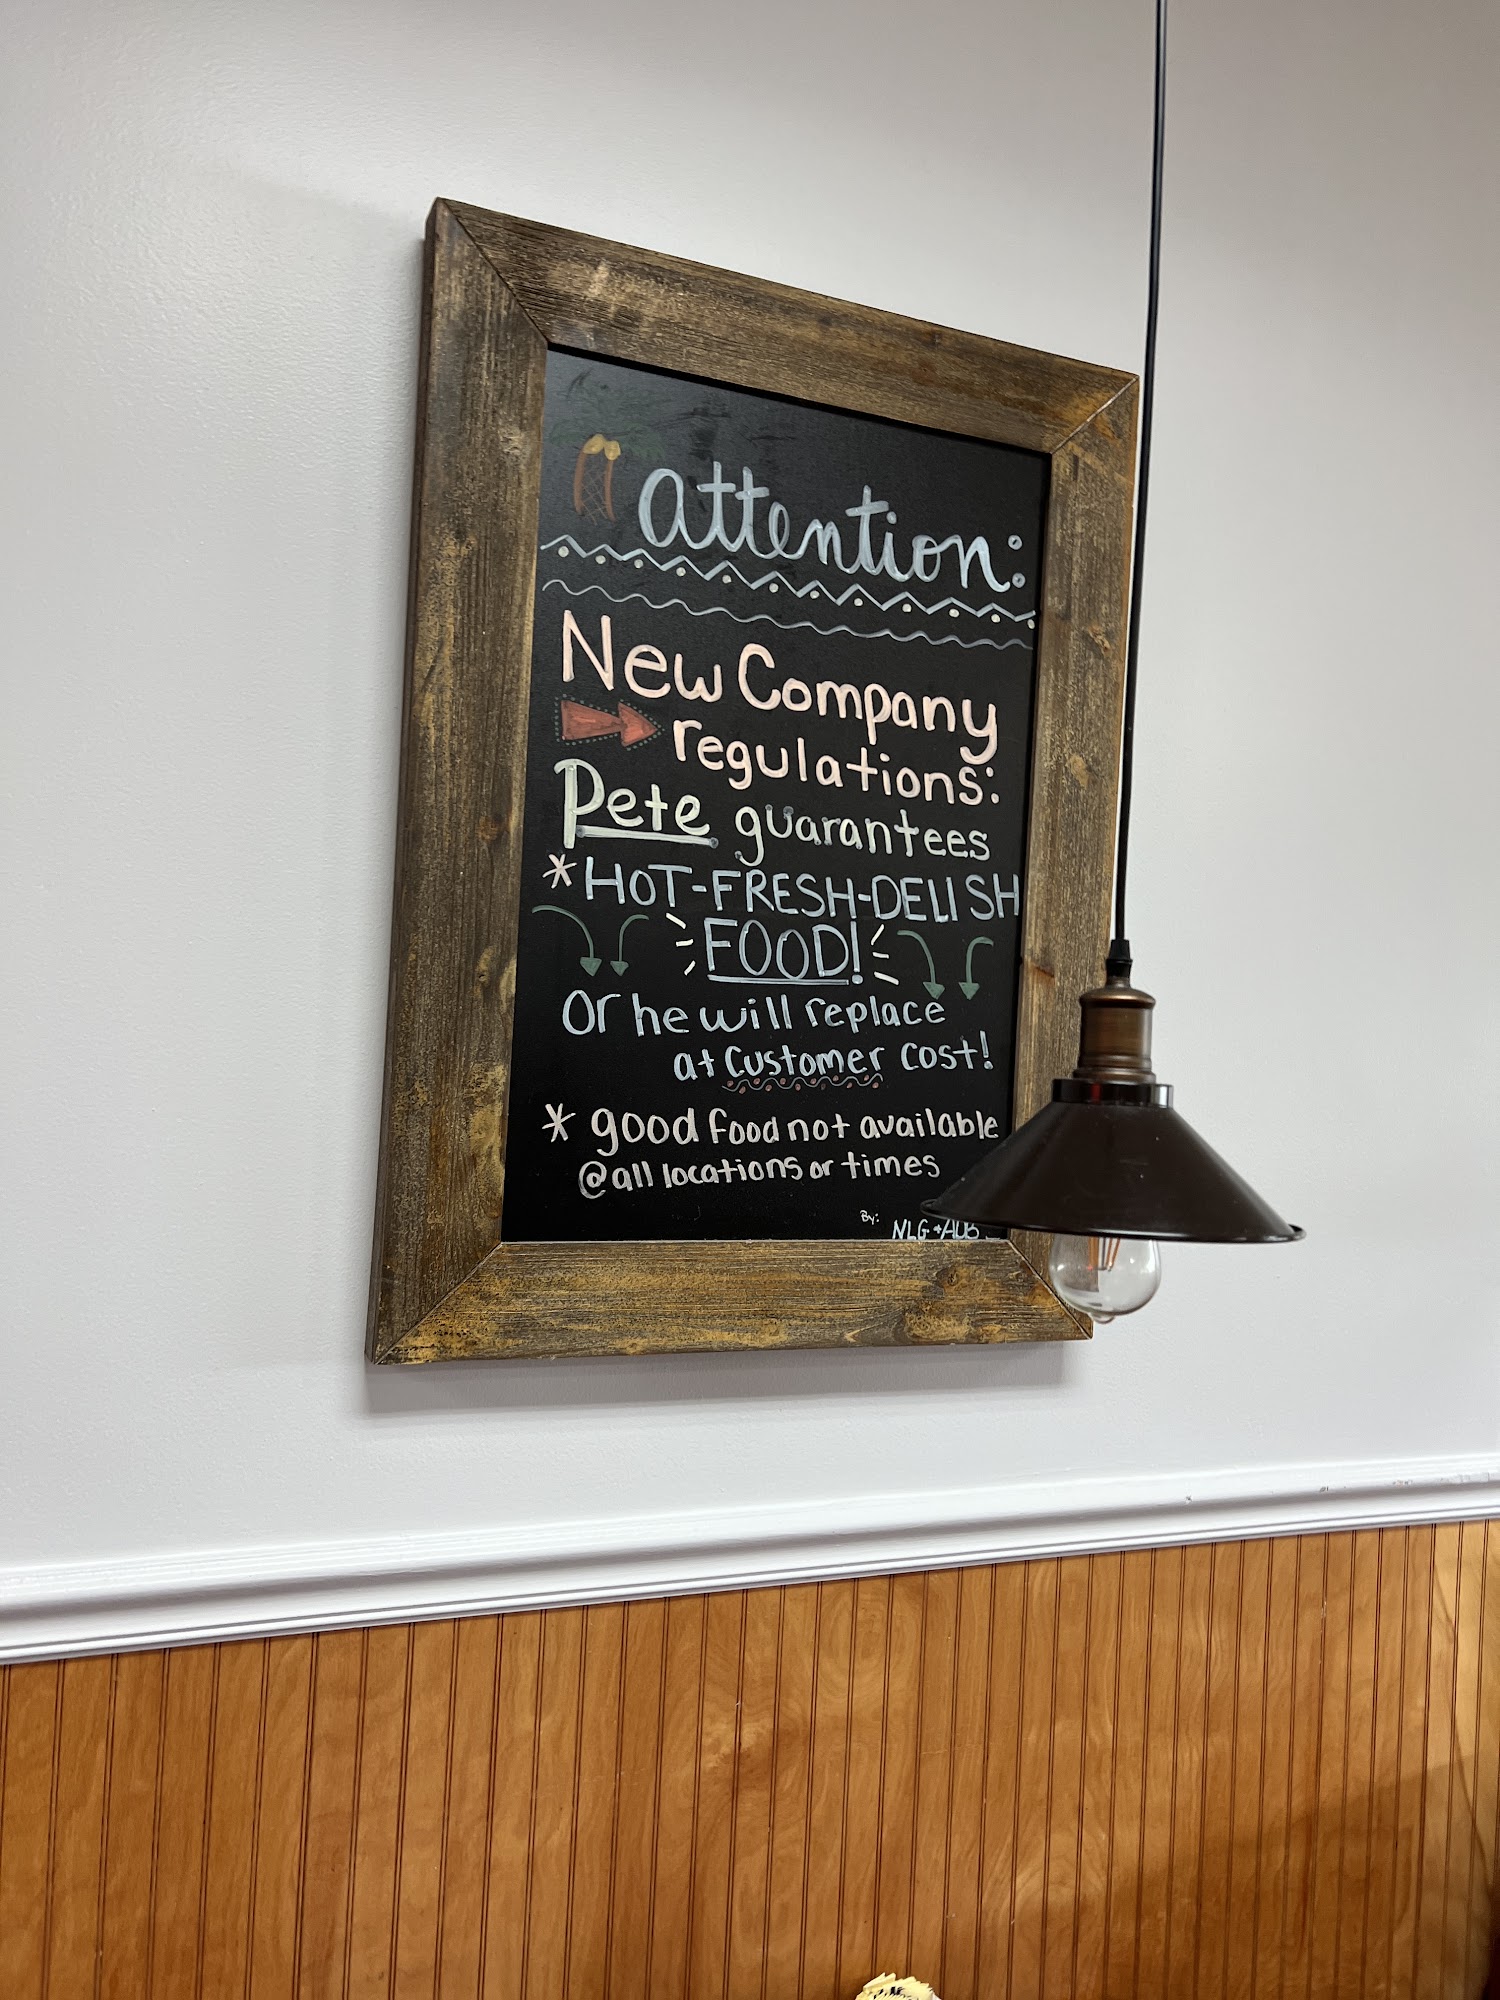 attention:
New Company
regulations:
Pete guarantees
*HOT-FRESH-DELISH
FOOD!
Or he will replace
at customer cost!
* good food not available
@all locations or times
By: NLG +